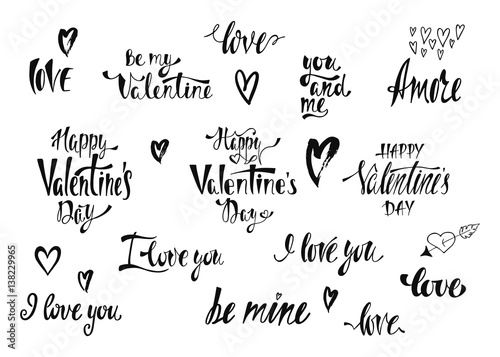 love
LOVE
Be my
Valentine
you
and
me
Amore
Happy
Valentine's
Day
Happy
Valentine's
Day
HAPPY
Valentine's
DAY
I love you
I love you
I love you
be mine
love
love
Adobe Stock | #138229965